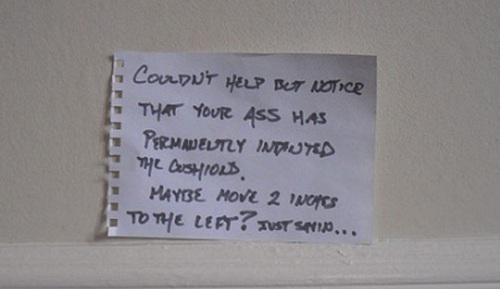 COULDN'T HELP BUT NOTICE
THAT YOUR ASS HAS
PERMANENTLY INDENTED
THE CUSHIONS.
MAYBE MOVE 2 INCHES
TO THE LEFT? JUST SAYIN...